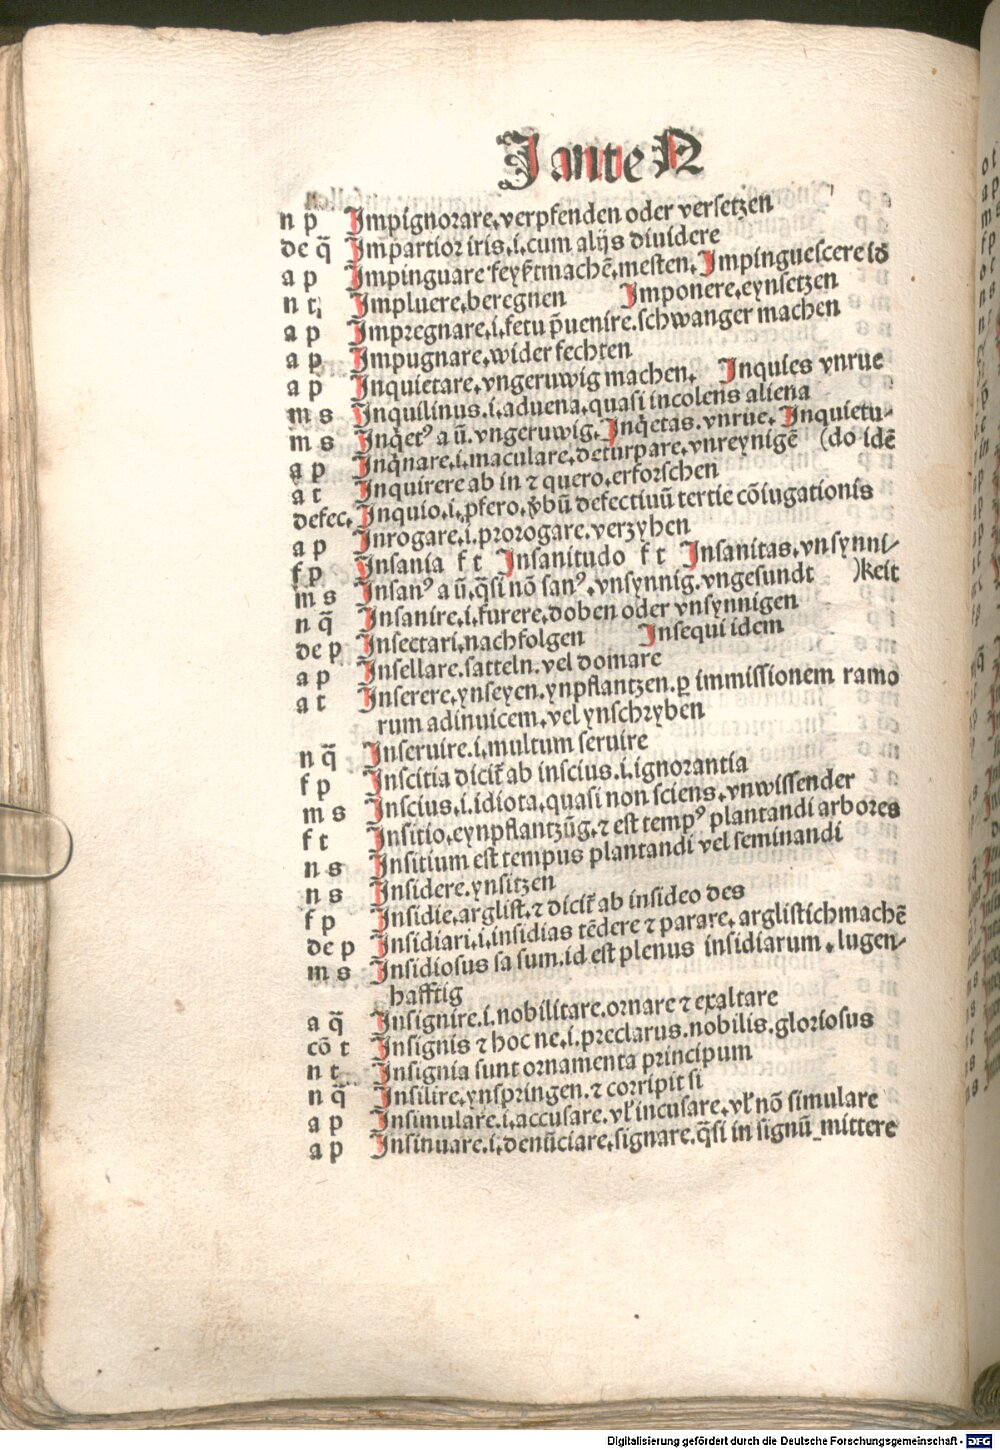 I ante N
n p Impignorare.verpfenden oder versetzen
de q̃ Impartior iris.i.cum alijs diuidere
a p Impinguare feyßtmachē.mesten. Impinguescere idē
n t Impluere.beregnen Imponere.eynsetzen
a p Impregnare.i.fetu p̃uenire.schwanger machen
a p Impugnare.wider fechten
a p Inquietare.vngeruwig machen. Inquies vnrue
m s Inquilinus.i.aduena.quasi incolens aliena
m s Inq̇etꝰ a ū.vngeruwig. Inq̇etas.vnrue. Inquietu-
a p Inq̇nare.i.maculare.deturpare.vnreynigē (do idē
a t Inquirere ab in ⁊ quero.erforschen
defec. Inquio.i.pfero.v̓bū defectiuū tertie cōiugationis
a p Inrogare.i.prorogare.verzyhen
f p Insania f t Insanitudo f t Insanitas.vnsynni-
m s Insanꝰ a ū.q̃si nō sanꝰ.vnsynnig.vngesundt )keit
n q̃ Insanire.i.furere.doben oder vnsynnigen
de p Insectari.nachfolgen Insequi idem
a p Insellare.satteln.vel domare
a t Inserere.ynseyen.ynpflantzen.ꝑ immissionem ramo
rum adinuicem.vel ynschryben
n q̃ Inseruire.i.multum seruire
f p Inscitia dicit̃ ab inscius.i.ignorantia
m s Inscius.i.idiota.quasi non sciens.vnwissender
f t Insitio.eynpflantzūg.⁊ est tempꝰ plantandi arbores
n s Insitium est tempus plantandi vel seminandi
n s Insidere.ynsitzen
f p Insidie.arglist.⁊ dicit̃ ab insideo des
de p Insidiari.i.insidias tēdere ⁊ parare.arglistichmachē
m s Insidiosus sa sum.id est plenus insidiarum.lugen-
hafftig
a q̃ Insignire.i.nobilitare.ornare ⁊ exaltare
cō t Insignis ⁊ hoc ne.i.preclarus.nobilis.gloriosus
n t Insignia sunt ornamenta principum
n q̃ Insilire.ynspringen.⁊ corripit si
a p Insimulare.i.accusare.vł incusare.vł nō simulare
a p Insinuare.i.denūciare.signare.q̃si in signū mittere
Digitalisierung gefördert durch die Deutsche Forschungsgemeinschaft - DFG